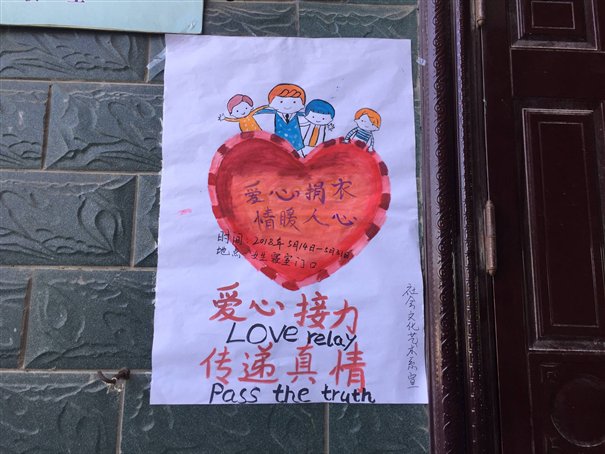 爱心捐衣
情暖人心
时间：2018年5月14日—5月31日
地点：女生寝室门口
爱心接力
LOVE relay
传递真情
Pass the truth
社会文化艺术系宣